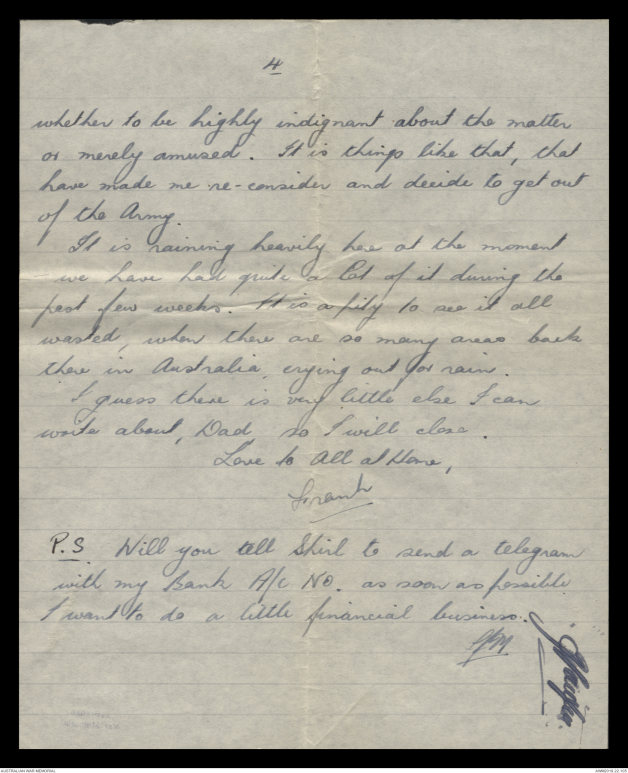 4
whether to be highly indignant about the matter
or merely amused. It is things like that, that
have made me re-consider and decide to get out
of the Army.
It is raining heavily here at the moment
we have had quite a lot of it during the
past few weeks. It is a pity to see it all
wasted, when there are so many areas back
there in Australia, crying out for rain.
I guess there is very little else I can
write about, Dad so I will close.
Love to All at Home,
Frank
P.S Will you tell Shirl to send a telegram
with my Bank A/c No. as soon as possible
I want to do a little financial business.
AUSTRALIAN WAR MEMORIAL